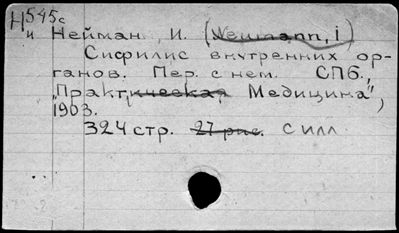 Н545с
и Нейман, И. (Neumann, i)
Сифилис внутренних ор-
ганов. Пер. с нем. СПб.,
"Практическая Медицина",
1903.
324 стр. 27 рис. с илл